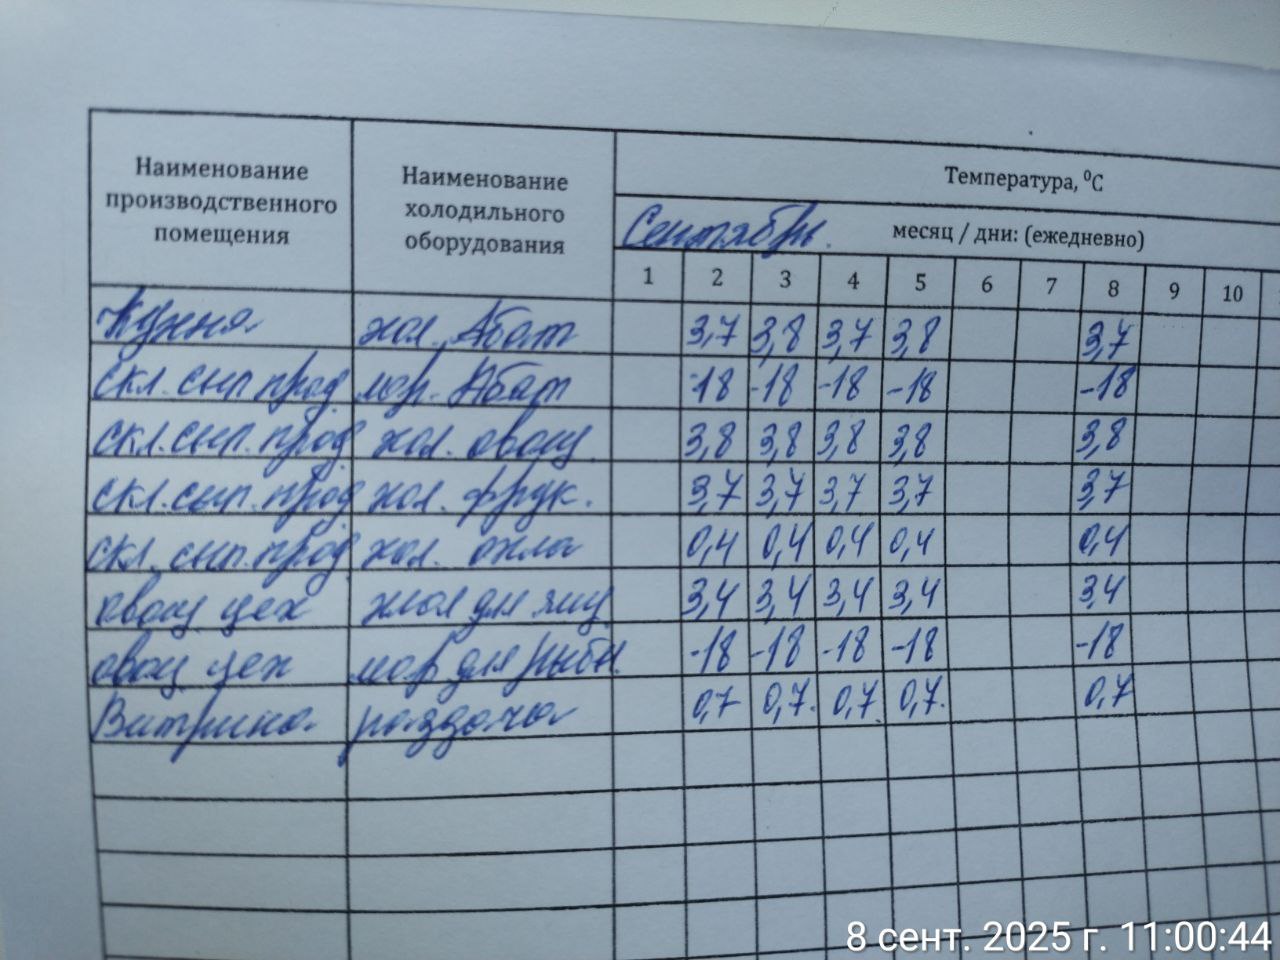 Наименование производственного помещения
Наименование холодильного оборудования
Температура, ⁰С
Сентябрь. месяц / дни: (ежедневно)
1 2 3 4 5 6 7 8 9 10
Кухня хол. Абат 3,7 3,8 3,7 3,8 3,7
скл. сып прод. мор. Абат -18 -18 -18 -18 -18
скл. сып. прод хол. овощ 3,8 3,8 3,8 3,8 3,8
скл. сып. прод хол. фрук. 3,7 3,7 3,7 3,7 3,7
скл. сып. прод. хол. 0,4 0,4 0,4 0,4 0,4
овощ цех хол для яиц 3,4 3,4 3,4 3,4 3,4
овощ цех мор для рыбы. -18 -18 -18 -18 -18
Витрина раздача 0,7 0,7. 0,7. 0,7. 0,7
8 сент. 2025 г. 11:00:44